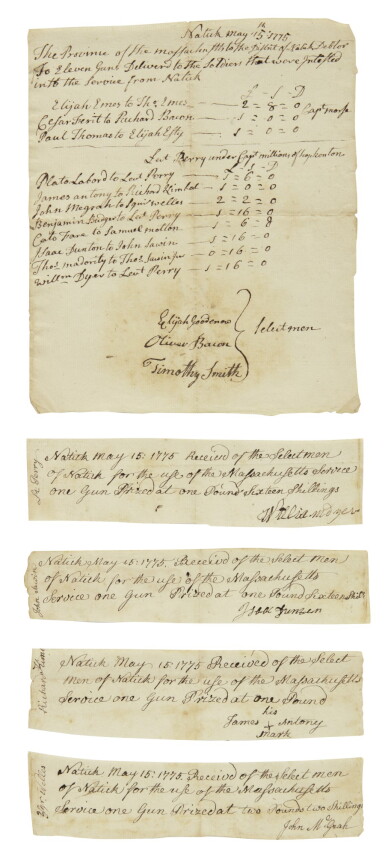 Natick may 15th 1775
The Province of the massachusetts to the District of Natick Debtor
To Eleven Guns Deliverd to the Soldiers that were Inlisted
into the Service from Natick
£ S D
Elijah Emes to Thos Emes — 2 = 8 = 0
Cesar Ferit to Richard Bacon — 1 = 0 = 0 Capt morse
Paul Thomas to Elijah Esty — 1 = 0 = 0
Leut Perry under Capt millions of hopkenton
£ S D
Plato Labord to Leut Perry — 1 = 6 = 0
James antony to Richard — 1 = 0 = 0
John Megrah to Squir welles — 2 = 2 = 0
Benjamin Badger to Leut Perry — 1 = 16 = 0
Cato Fare to Samuel morton — 1 = 6 = 8
Isaac Funton to John Sawin — 1 = 16 = 0
Thos to Thos Sawin — 0 = 16 = 0
willm Dyer to Leut Perry — 1 = 16 = 0
Elijah Goodenow
Oliver Bacon
Timothy Smith
Select men
Lt Perry
Natick May 15: 1775 Received of the Select men
of Natick for the use of the Massachusetts Service
one Gun Prized at one Pound Sixteen Shillings
John Sawin
Natick May 15: 1775 Received of the Select men
of Natick for the use of the Massachusetts
Service one Gun Prized at one Pound Sixteen Shills
Natick May 15: 1775 Received of the Select
men of Natick for the use of the Massachusetts
Service one Gun Prized at one Pound
his
James + Antony
mark
Sqr Welles
Natick May 15: 1775 Received of the Select men
of Natick for the use of the Massachusetts
Service one Gun Prized at two Pound two Shillings
John McGrah